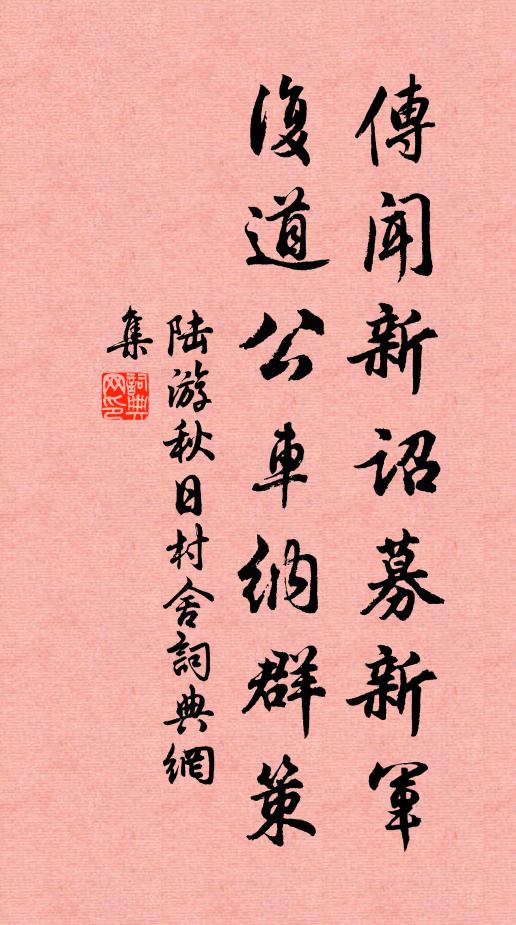 傳聞新詔募新軍
復道公車納群策
陆游秋日村舍詞典網
集
詞典
网印